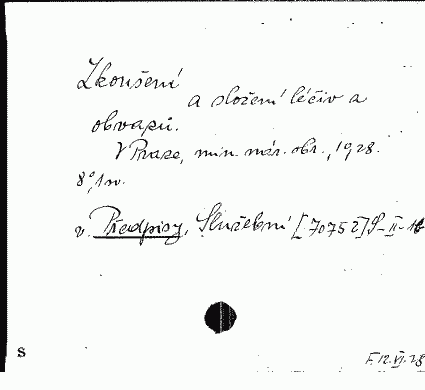 Zkoušení
a složení léčiv a
obvazů.
V Praze, min. nár. obr., 1928.
8°, 1 sv.
v. Předpisy, Služební [70752] S-II-16
S
F. 12.VI.28